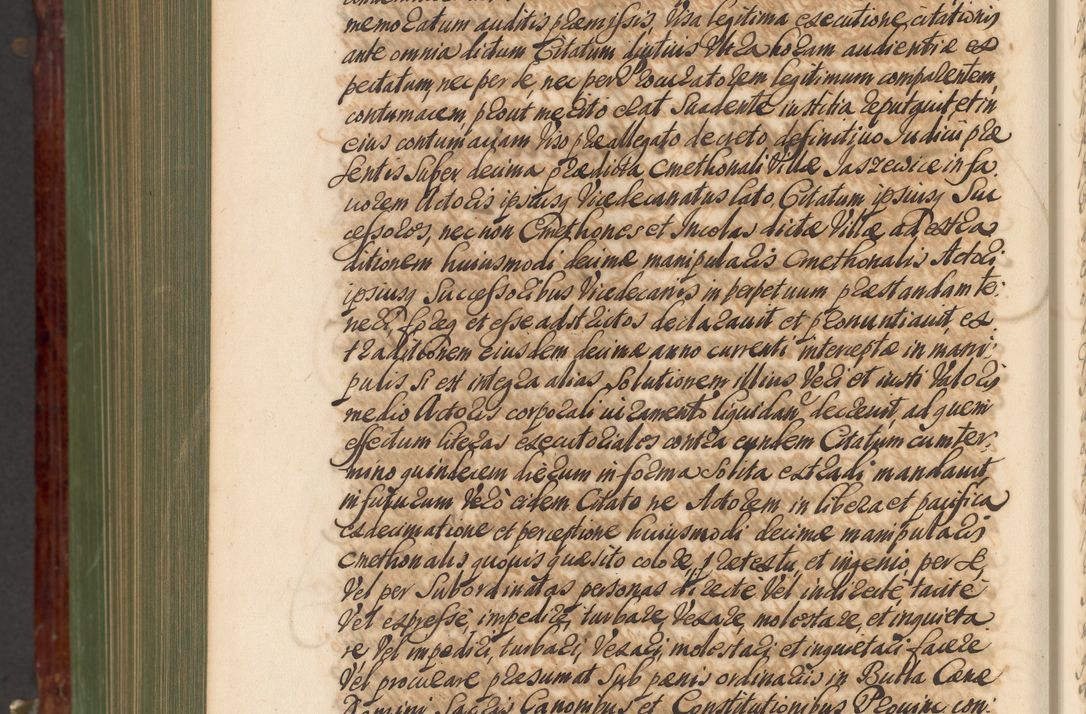 memoratum auditis præmissis, visa legitima executione citationis
ante omnia dictum Citatum diutius Ultra horam audientiæ ex
pectatum, nec per se, nec per Procuratorem legitimum comparentem,
contumacem prout merito erat Suadente iustitia reputavit, et in
eius contumaciam Viso præallegato decreto definitivo Iudicii præ
sentis Super decima prædicta Cmethonali Villæ Jaszewice in fa
vorem Actoris ipsiusq Vicedecanatus lato, Citatum ipsiusq Suc
cessores, nec non Cmethones et Incolas dictæ Villæ ad extra
ditionem huiusmodi decimæ manipularis Cmethonalis Actori
ipsiusq Successoribus Vicedecanis in perpetuum præstandam te:
neri, et esse adstrictos declaravit et pronuntiavit, ex
traditionem eiusdem decimæ anno currenti interceptæ in mani:
pulis Si ext integra alias Solutionem illius Veri et iusti Valoris
medio Actoris corporali iuramento liquidan decrevit, ad quem
effectum literas executoriales contra eundem Citatum cum ter:
mino quindecem dierum in forma Solita extradi mandavit,
in futurum Verò eidem Citato ne Actorem in libera et pacifica
exdecimatione et perceptione huiusmodi decimæ manipularis
Cmethonalis quovis quæsito colore, prætextu, et ingenio, per se,
Vel per Subordinatas personas directè Vel indirectè tacitè
Vel expressè, impedire, turbare, Vexare, molestare, et inquieta
re Vel impediri, turbari, Vexari, molestari et inquietari facere
Vel procurare præsumat Sub pœnis ordinariis in Bulla Cœnæ
Domini Sacris Canonibus et Constitutionibus Provin: con: